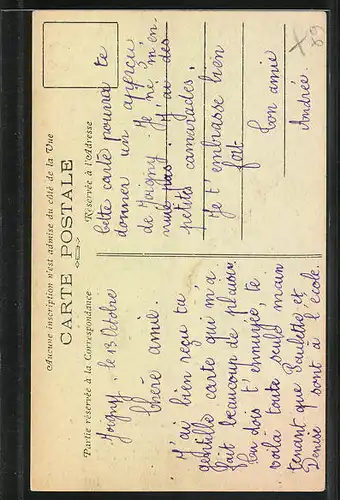 Aucune inscription n'est admise du côté de la Vue
CARTE POSTALE
Partie réservée à la Correspondance
Réservée à l'Adresse
Joigny, le 13 Octobre
Chère amie.
J'ai bien reçu ta
gentille carte qui m'a
fait beaucoup de plaisir.
Tu dois t'ennuyée, te
voila toute seule main
tenant que Paulette et
Denise sont à l'école.
Cette carte pourra te
donner un aperçu
de Joigny. Je ne m'en
nuie pas. J'ai des
petites camarades.
Je t'embrasse bien
fort
Ton amie
Andrée
X
89